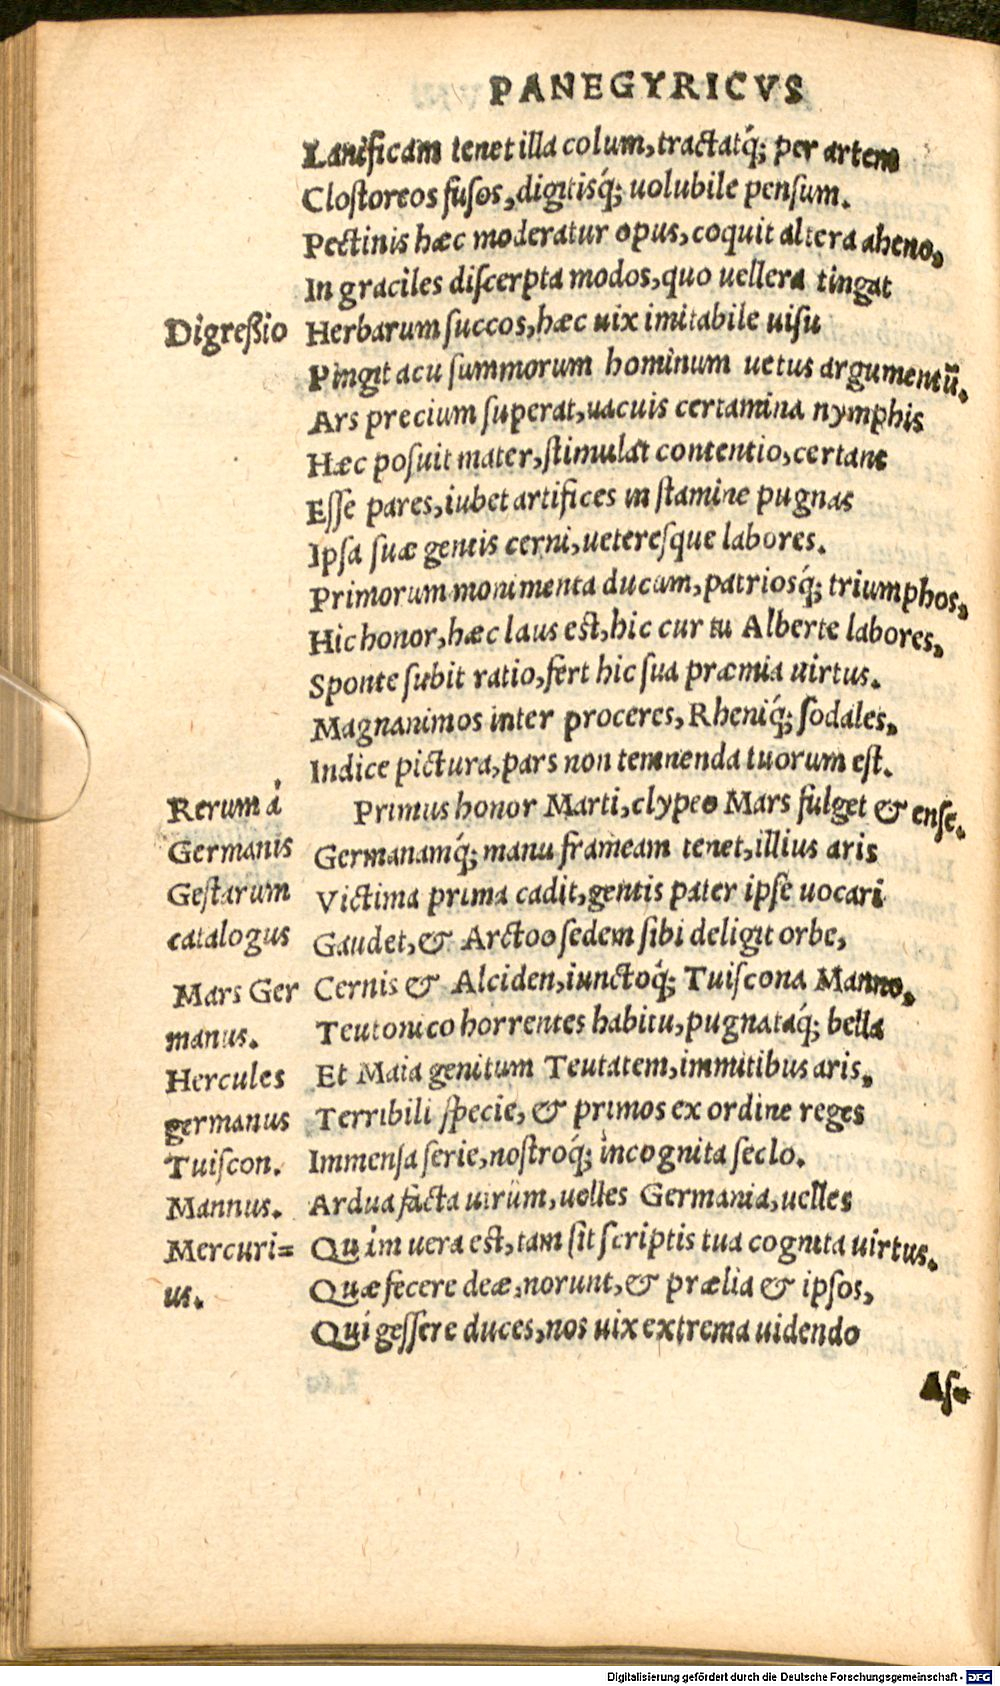 PANEGYRICVS
Lanificam tenet illa colum, tractatq́; per artem
Clostoreos fusos, digitisq́; uolubile pensum.
Pectinis hæc moderatur opus, coquit altera aheno,
In graciles discerpta modos, quo uellera tingat
Digreßio
Herbarum succos, hæc uix imitabile uisu
Pingit acu summorum hominum uetus argumentū.
Ars precium superat, uacuis certamina nymphis
Hæc posuit mater, stimulat contentio, certant
Esse pares, iubet artifices in stamine pugnas
Ipsa suæ gentis cerni, ueteresque labores.
Primorum monimenta ducum, patriosq́; triumphos,
Hic honor, hæc laus est, hic cur tu Alberte labores,
Sponte subit ratio, fert hic sua præmia uirtus.
Magnanimos inter proceres, Rheniq́; sodales,
Indice pictura, pars non temnenda tuorum est.
Rerum á
Germanis
Gestarum
catalogus
Mars Ger
manus.
Hercules
germanus
Tuiscon.
Mannus.
Mercuri=
us.
Primus honor Marti, clypeo Mars fulget & ense.
Germanamq́; manu frameam tenet, illius aris
Victima prima cadit, gentis pater ipse uocari
Gaudet, & Arctoo sedem sibi deligit orbe,
Cernis & Alciden, iunctoq́; Tuiscona Manno,
Teutonico horrentes habitu, pugnataq́; bella
Et Maia genitum Teutatem, immitibus aris,
Terribili specie, & primos ex ordine reges
Immensa serie, nostroq́; incognita seclo.
Ardua facta uirûm, uelles Germania, uelles
Quàm uera est, tam sit scriptis tua cognita uirtus.
Quæ fecere deæ, norunt, & prælia & ipsos,
Qui gessere duces, nos uix extrema uidendo
As=
Digitalisierung gefördert durch die Deutsche Forschungsgemeinschaft - DFG